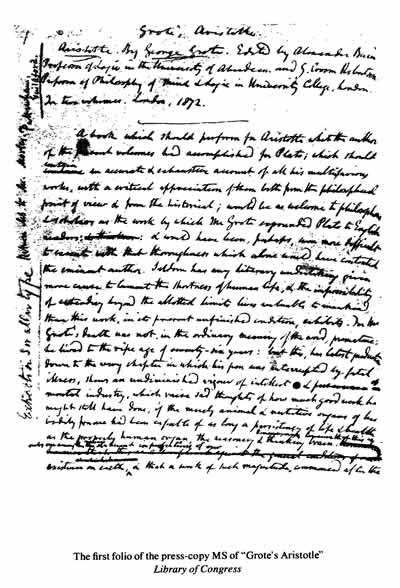 Grote's Aristotle
Aristotle. By George Grote. Edited by Alexander Bain
Professor of Logic in the University of Aberdeen and G. Croom Robertson
Professor of Philosophy of Mind & Logic in University College, London.
In two volumes. London, 1872.
A book which should perform for Aristotle what the author
of the present volumes had accomplished for Plato; which should
an accurate & exhaustive account of all his multifarious
works, with a critical appreciation of them both from the philosophical
point of view & from the historical; would be as welcome to philosophers
& scholars as the work by which Mr Grote expounded Plato to English
readers; & would have been, perhaps, even more difficult
to execute with that thoroughness which alone would have contented
the eminent author. Seldom has any literary undertaking given
more cause to lament the shortness of human life, & the impossibility
of extending beyond the allotted limit lives invaluable to mankind
than this work, in its present unfinished condition, exhibits. Mr
Grote's death was not, in the ordinary meaning of the word, premature:
he lived to the ripe age of seventy-six years: but this, his latest product
down to the very chapter in which his pen was intercepted by fatal
illness, shews an undiminished vigour of intellect &
mental industry, which raise sad thoughts of how much good work he
might still have done, if the merely animal & nutritive organs of his
bodily frame had been capable of as long a persistency of life & health
as the properly human organ, the sensory & thinking brain.
existence on earth, that a work of such magnitude, commenced after the
The first folio of the press-copy MS of "Grote's Aristotle"
Library of Congress